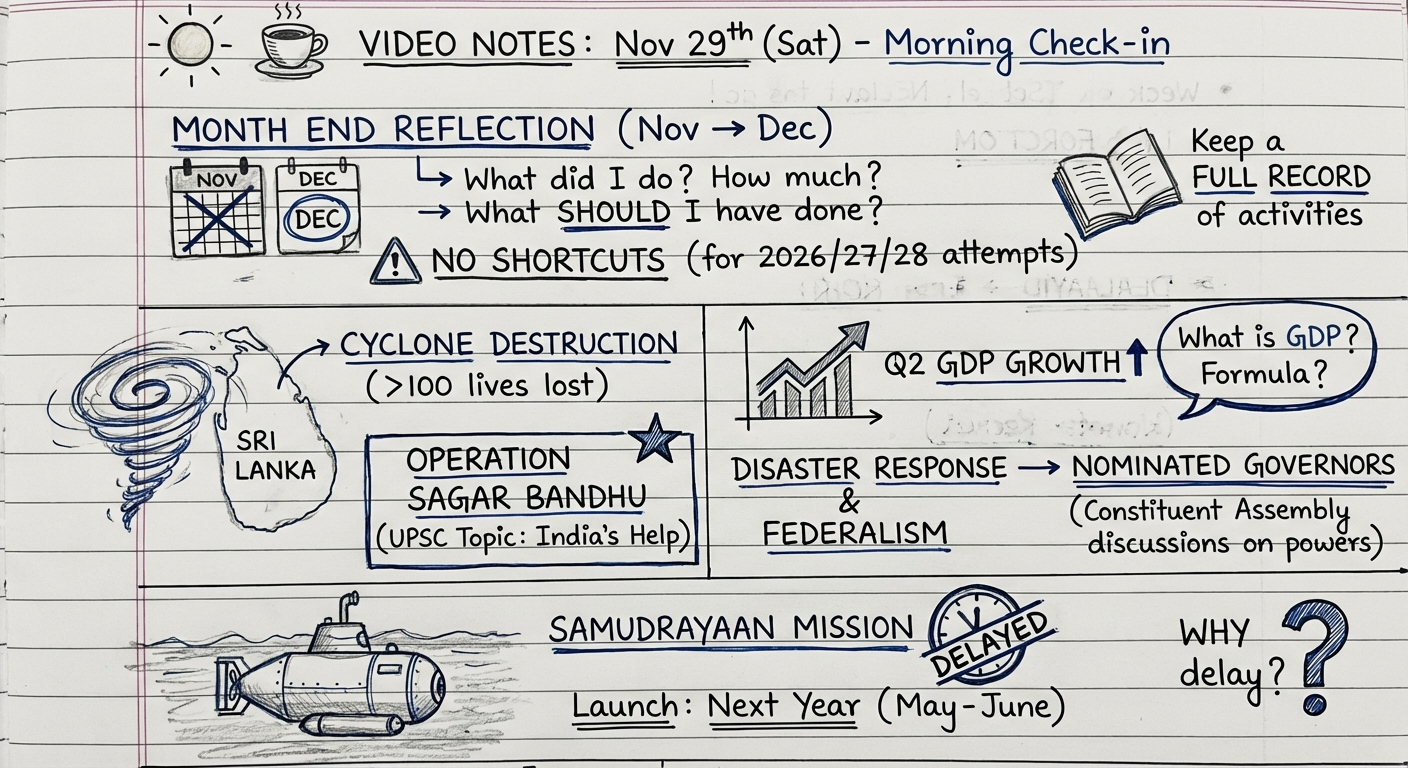 VIDEO NOTES: Nov 29th (Sat) - Morning Check-in
MONTH END REFLECTION (Nov → Dec)
NOV
DEC
DEC
↳ What did I do? How much?
→ What SHOULD I have done?
! NO SHORTCUTS (for 2026/27/28 attempts)
Keep a
FULL RECORD
of activities
SRI
LANKA
CYCLONE DESTRUCTION
(>100 lives lost)
OPERATION
SAGAR BANDHU
(UPSC Topic: India's Help)
Q2 GDP GROWTH ↑
What is GDP?
Formula?
DISASTER RESPONSE → NOMINATED GOVERNORS
&
FEDERALISM
(Constituent Assembly
discussions on powers)
SAMUDRAYAAN MISSION
DELAYED
Launch: Next Year (May-June)
WHY
delay?
?